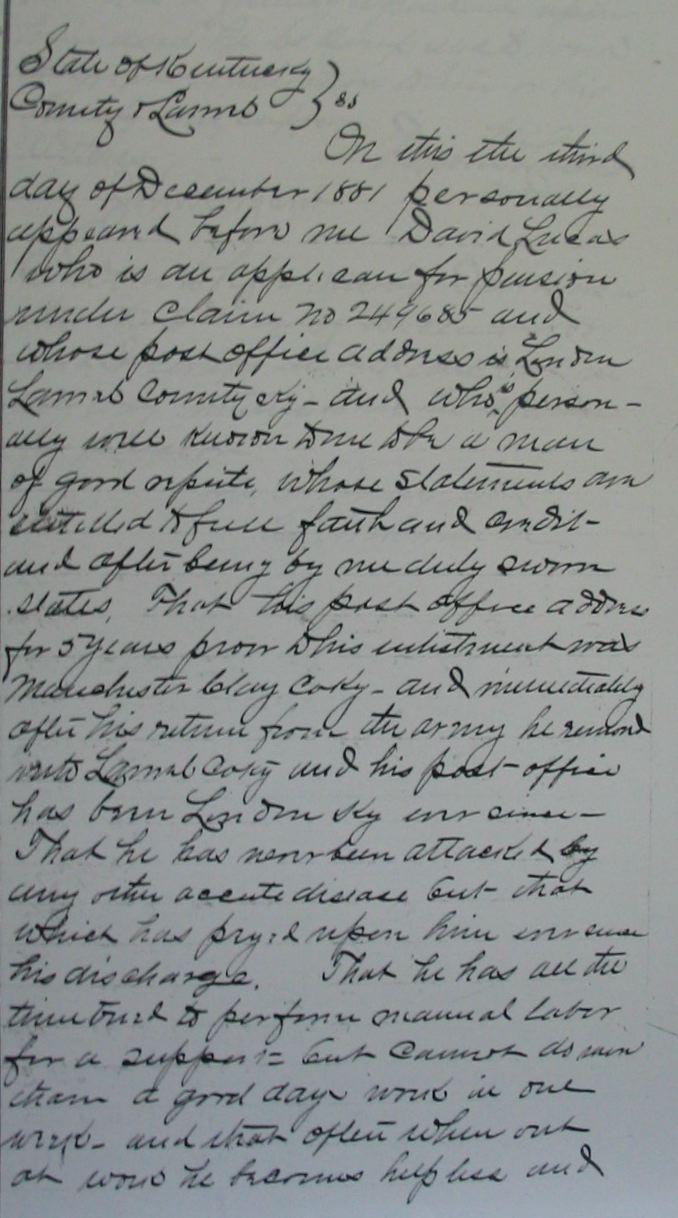 State of Kentucky
County of Laurel } ss
On this the third
day of December 1881 personally
appeared before me David Lucas
who is an applican for pension
under claim no 249685 and
whose post office address is London
Laurel County Ky - and who is person-
ally well known to me to be a man
of good repute, whose statements are
entitled to full faith and credit -
and after being by me duly sworn
states, That his post office address
for 5 years prior to his enlistment was
Manchester Clay Co Ky - and immediately
after his return from the army he removed
into Laurel Co Ky and his post office
has been London Ky ever since -
That he has never been attacked by
any other accute disease but that
which has preyed upon him ever since
his discharge. That he has all the
time tried to perform manual labor
for a support - but cannot do more
than a good days work in one
week - and that often when out
at work he becomes helpless and